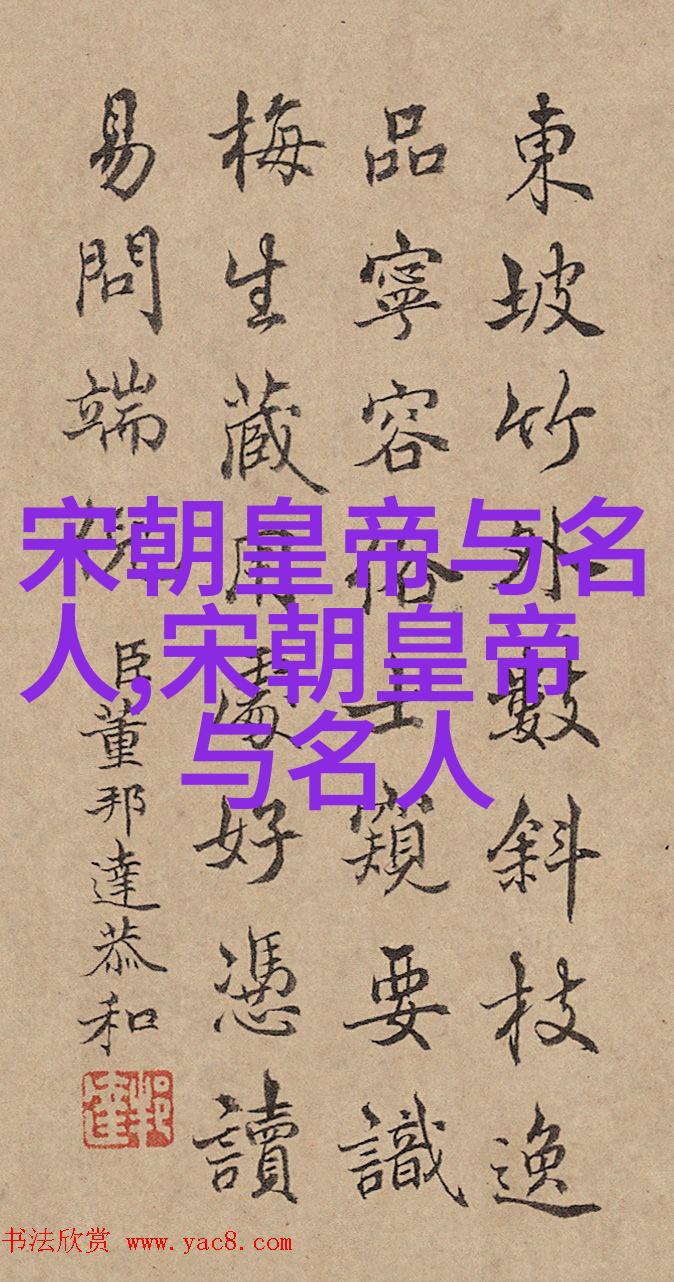 東坡竹外數斜枝逸
品寧容俗士窺要識
梅生藏用處好憑讀
易問端倪
臣董邦達恭和
宋朝皇帝与名
人,宋朝皇帝
与名人
书法欣赏 www.yac8.com